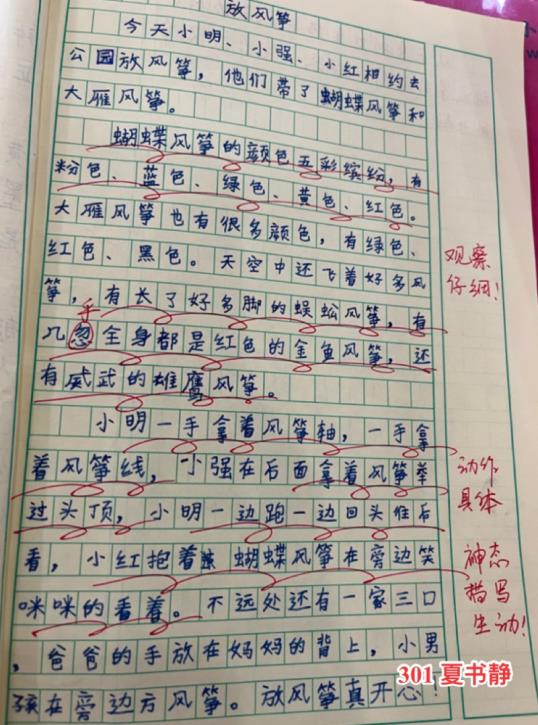 放风筝
今天小明、小强、小红相约去
公园放风筝，他们带了蝴蝶风筝和
大雁风筝。
蝴蝶风筝的颜色五彩缤纷，有
粉色、蓝色、绿色、黄色、红色。
大雁风筝也有很多颜色，有绿色、
红色、黑色。天空中还飞着好多风
筝，有长了好多脚的蜈蚣风筝，有
几乎忽全身都是红色的金鱼风筝，还
有威武的雄鹰风筝。
小明一手拿着风筝轴，一手拿
着风筝线，小强在后面拿着风筝举
过头顶，小明一边跑一边回头往后
看，小红抱着蝴蝶风筝在旁边笑
咪咪的看着。不远处还有一家三口
，爸爸的手放在妈妈的背上，小男
孩在旁边方风筝。放风筝真开心！
观察
仔细！
动作
具体
神态
描写
生动！
301 夏书静